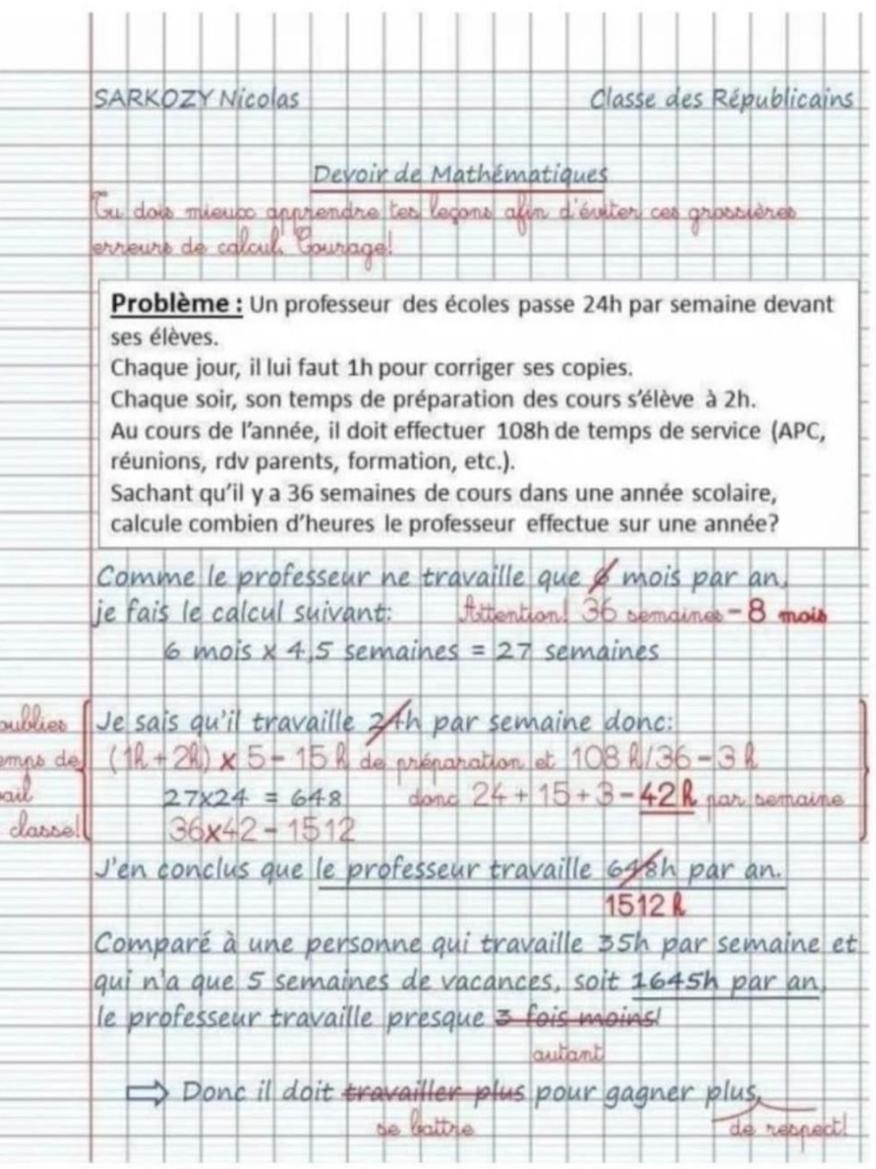 SARKOZY Nicolas Classe des Républicains
Devoir de Mathématiques
Tu dois mieux apprendre tes leçons afin d'éviter ces grossières
erreurs de calcul. Courage!
Problème : Un professeur des écoles passe 24h par semaine devant
ses élèves.
Chaque jour, il lui faut 1h pour corriger ses copies.
Chaque soir, son temps de préparation des cours s'élève à 2h.
Au cours de l'année, il doit effectuer 108h de temps de service (APC,
réunions, rdv parents, formation, etc.).
Sachant qu'il y a 36 semaines de cours dans une année scolaire,
calcule combien d'heures le professeur effectue sur une année?
Comme le professeur ne travaille que 6 mois par an,
je fais le calcul suivant: Attention! 36 semaines = 8 mois
6 mois x 4,5 semaines = 27 semaines
oublies Je sais qu'il travaille 24h par semaine donc:
emps de (1h + 2h) x 5 = 15 h de préparation et 108 h/36 = 3 h
ail 27x24 = 648 donc 24 + 15 + 3 = 42h par semaine
classe! 36x42 = 1512
J'en conclus que le professeur travaille 648h par an.
1512 h
Comparé à une personne qui travaille 35h par semaine et
qui n'a que 5 semaines de vacances, soit 1645h par an,
le professeur travaille presque 3 fois moins!
autant
⇨ Donc il doit travailler plus pour gagner plus
se battre de respect!